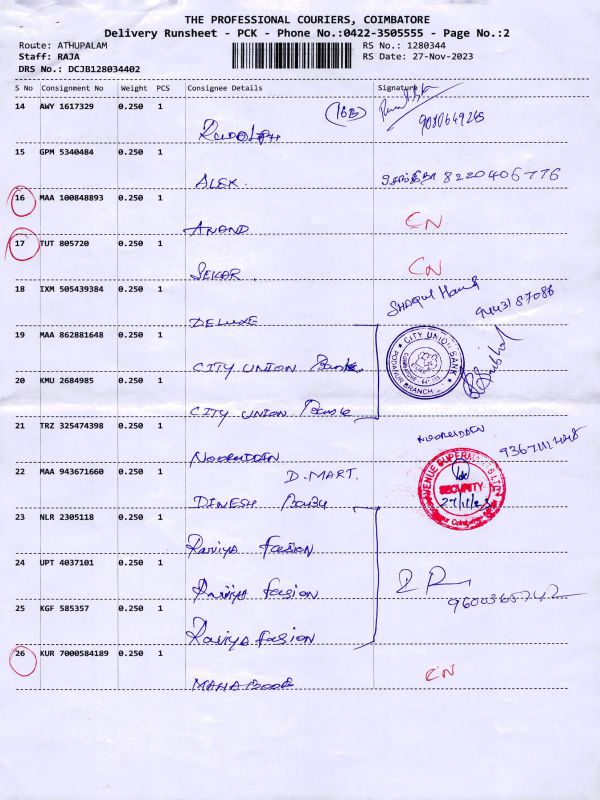 THE PROFESSIONAL COURIERS, COIMBATORE
Delivery Runsheet - PCK - Phone No.:0422-3505555 - Page No.:2
Route: ATHUPALAM RS No.: 1280344
Staff: RAJA RS Date: 27-Nov-2023
DRS No.: DCJB128034402
S No Consignment No Weight PCS Consignee Details Signature
14 AWY 1617329 0.250 1
15 GPM 5340484 0.250 1
ALEX. 8220406776
16 MAA 100848893 0.250 1
ANAND CN
17 TUT 805720 0.250 1
SEKAR. CN
18 IXM 505439384 0.250 1
DELUXE 9443187086
19 MAA 862881648 0.250 1
CITY UNION Bank
CITY UNION BANK
PODANUR BRANCH
20 KMU 2684985 0.250 1
CITY UNION Bank
21 TRZ 325474398 0.250 1
NOORUDDEN NOORUDDEN
22 MAA 943671660 0.250 1
D.MART.
DINESH
SECURITY
27/11/23
23 NLR 2305118 0.250 1
Raniya Fasion
24 UPT 4037101 0.250 1
Raniya Fasion
9600365742
25 KGF 585357 0.250 1
Raniya Fasion
26 KUR 7000584189 0.250 1
MAHABOOB CN